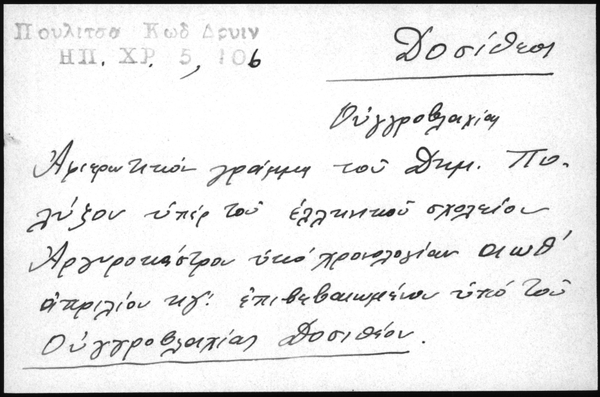 Πουλιτσα Κωδ Δρυιν
ΗΠ. ΧΡ. 5, 106
Δοσίθεος
Οὑγγροβλαχίας
Ἀφιερωτικόν γράμμα τοῦ Δημ. Πο-
λύξου ὑπέρ τοῦ ἑλληνικοῦ σχολείου
Ἀργυροκάστρου ὑπό χρονολογίαν αιωθ'
ἀπριλίου κγ': ἐπιβεβαιωμένον ὑπό τοῦ
Οὑγγροβλαχίας Δοσιθέου.